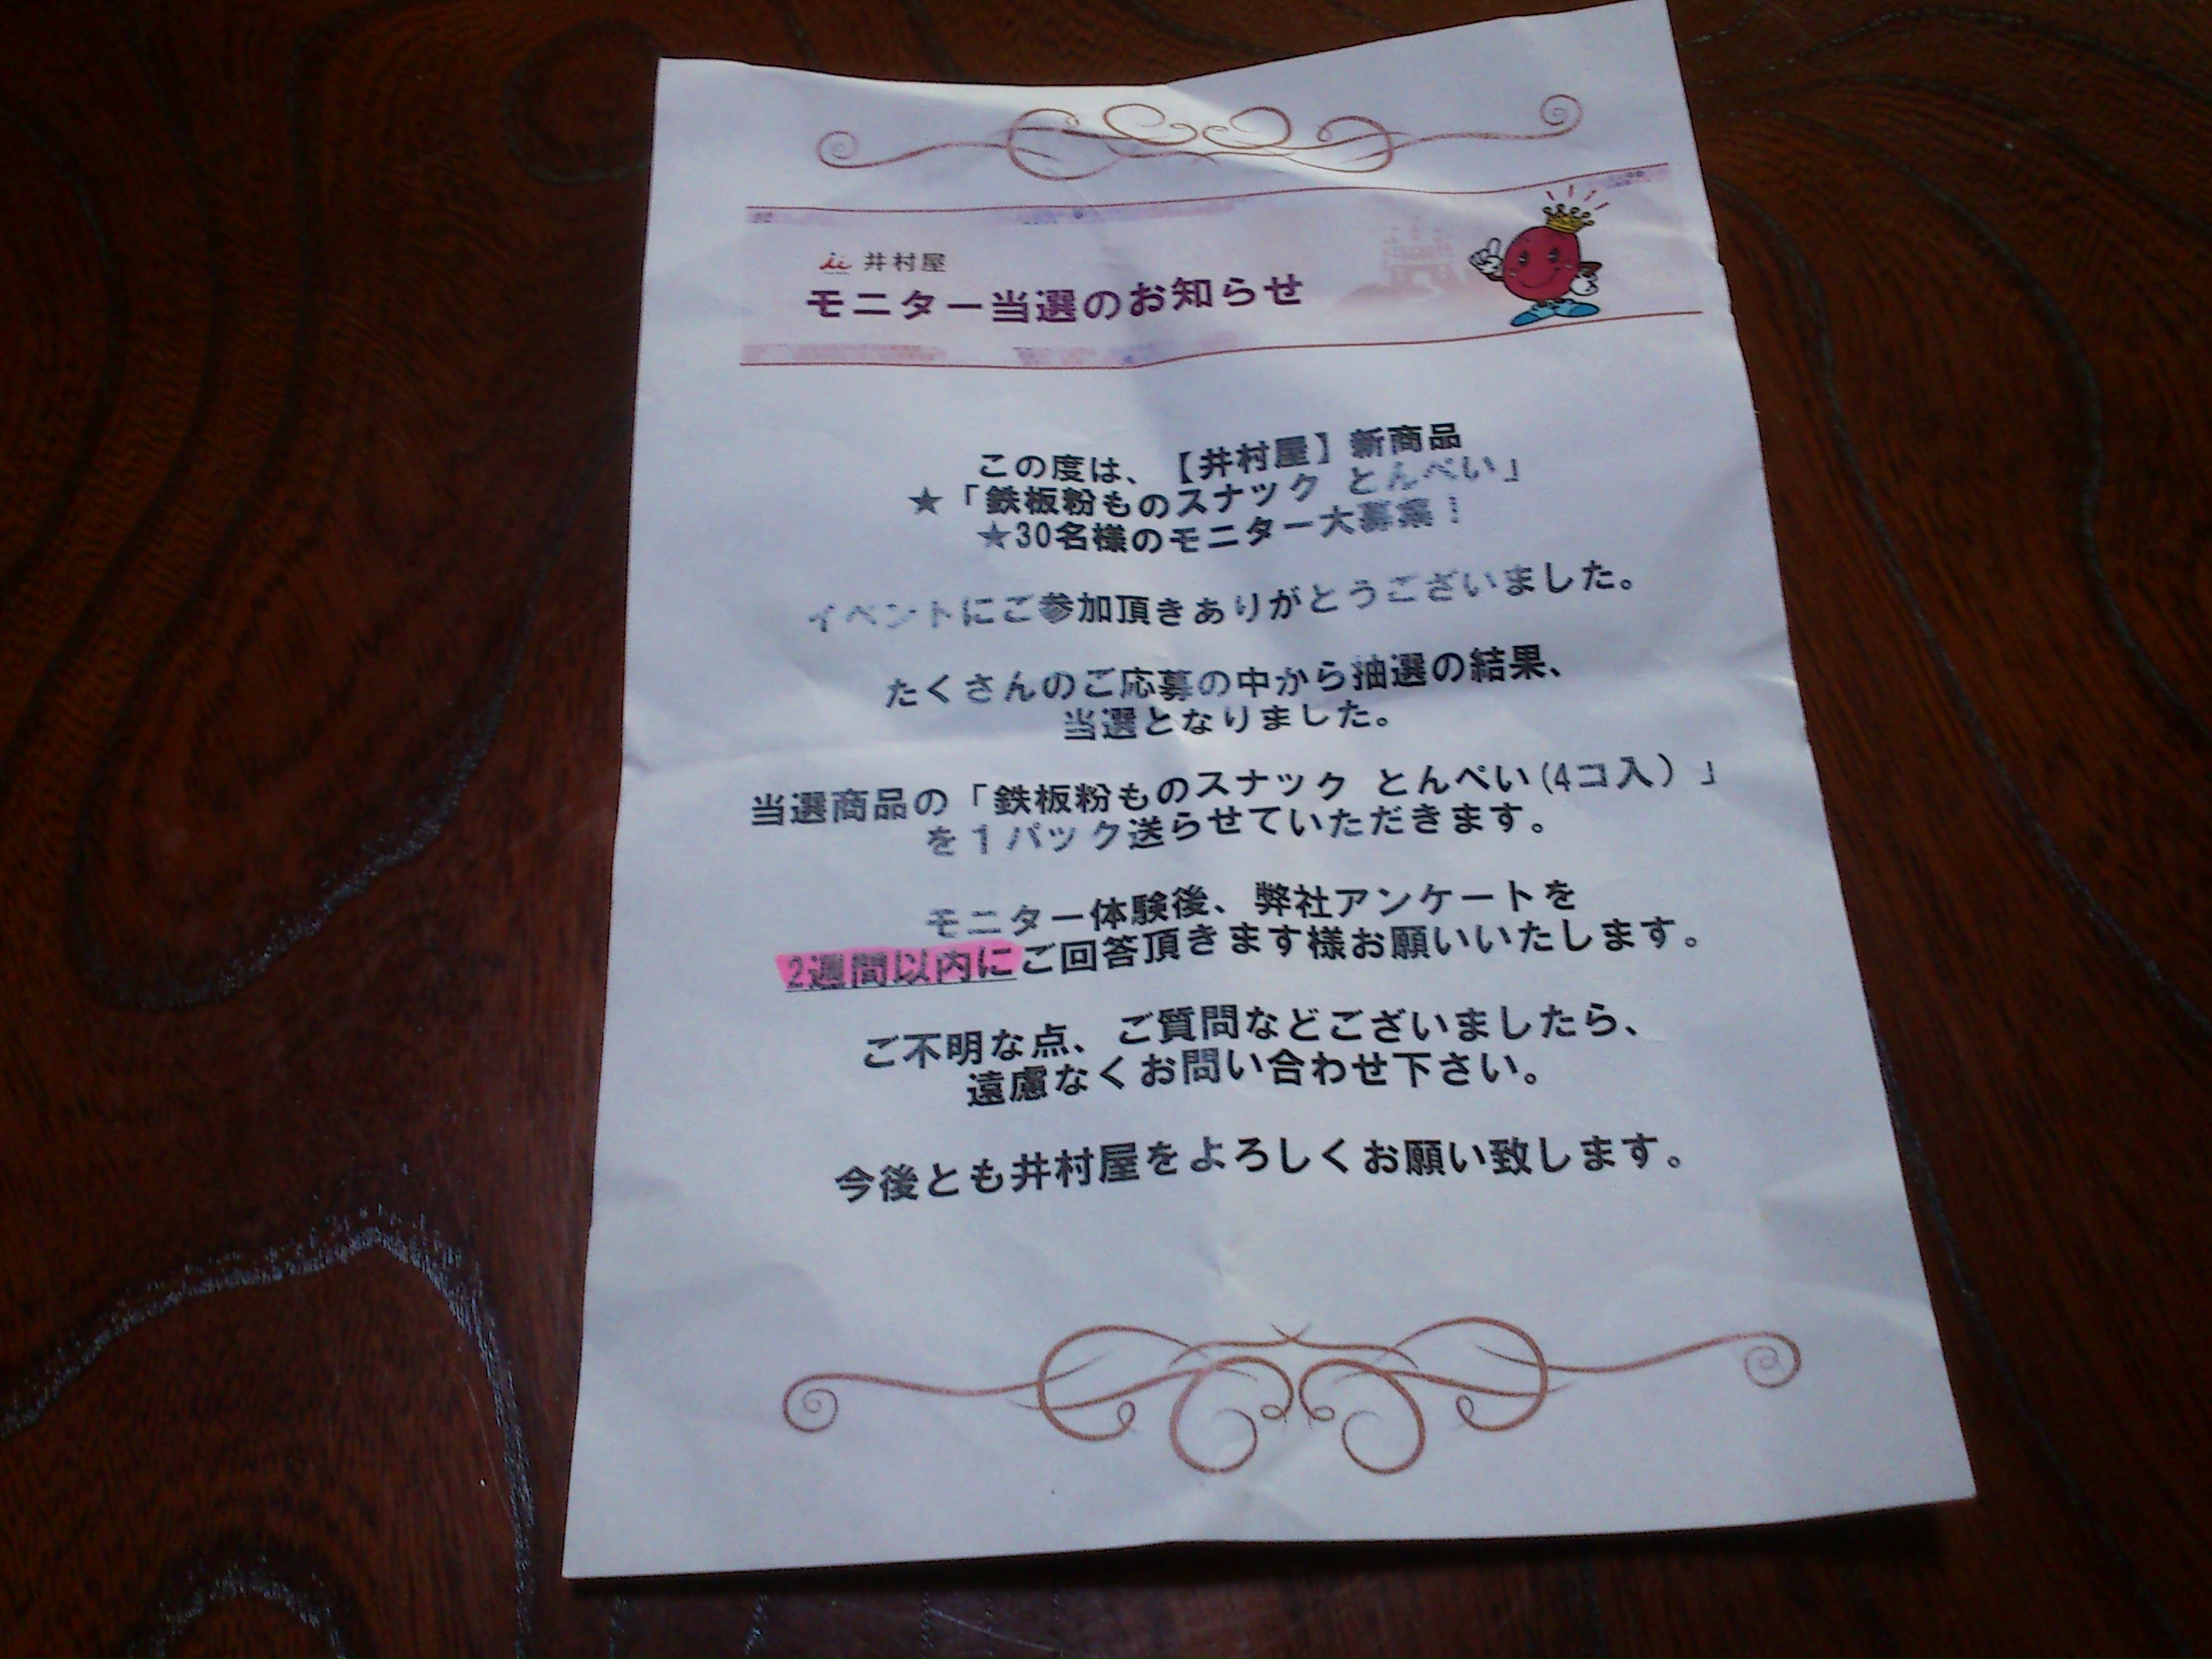 井村屋
モニター当選のお知らせ
この度は、【井村屋】新商品
★「鉄板粉ものスナック とんぺい」
★30名様のモニター大募集!
イベントにご参加頂きありがとうございました。
たくさんのご応募の中から抽選の結果、
当選となりました。
当選商品の「鉄板粉ものスナック とんぺい(4コ入)」
を1パック送らせていただきます。
モニター体験後、弊社アンケートを
2週間以内にご回答頂きます様お願いいたします。
ご不明な点、ご質問などございましたら、
遠慮なくお問い合わせ下さい。
今後とも井村屋をよろしくお願い致します。